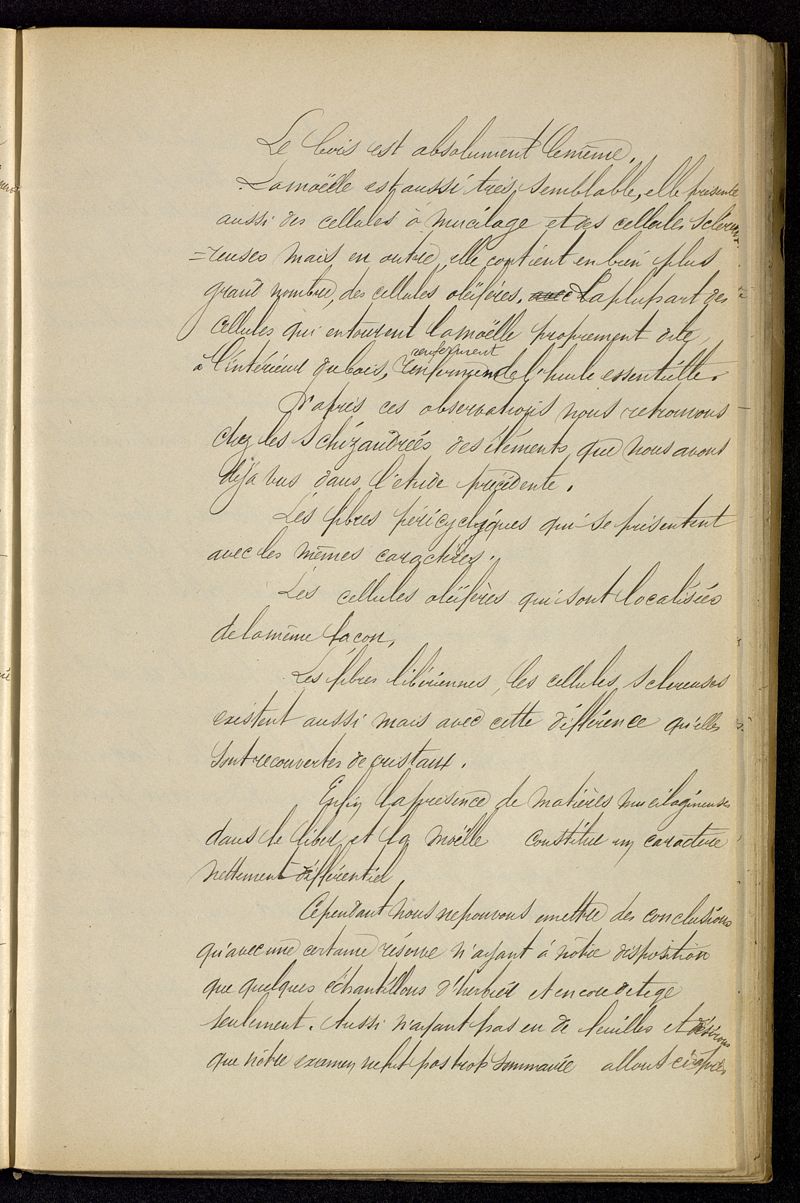 Le bois est absolument le même.
La moëlle est aussi très semblable, elle présente
aussi des cellules à mucilage et des cellules scléren
=reuses mais en outre, elle contient en bien plus
grand nombre, des cellules oléifères. avec La plupart des
cellules qui entourent la moëlle proprement dite,
à l'intérieur du bois, renferment
renferment de l'huile essentielle.
D'après ces observations nous retrouvons
chez les Schizandrées des éléments, que nous avons
déjà vus dans l'étude précédente.
Les fibres péricycliques qui se présentent
avec les mêmes caractères.
Les cellules oléifères qui sont localisées
de la même façon.
Les fibres libériennes, les cellules scléreuses
existent aussi mais avec cette différence qu'elles
sont recouvertes de cristaux.
Enfin la présence de matières mucilagineuses
dans le liber et la moëlle constitue un caractère
nettement différentiel
Cependant nous ne pouvons émettre des conclusions
qu'avec une certaine réserve n'ayant à nôtre disposition
que quelques échantillons d'herbier et encore de tige
seulement. Aussi n'ayant pas eu de feuilles et désirons
que nôtre examen ne fut pas trop sommaire allons ci après